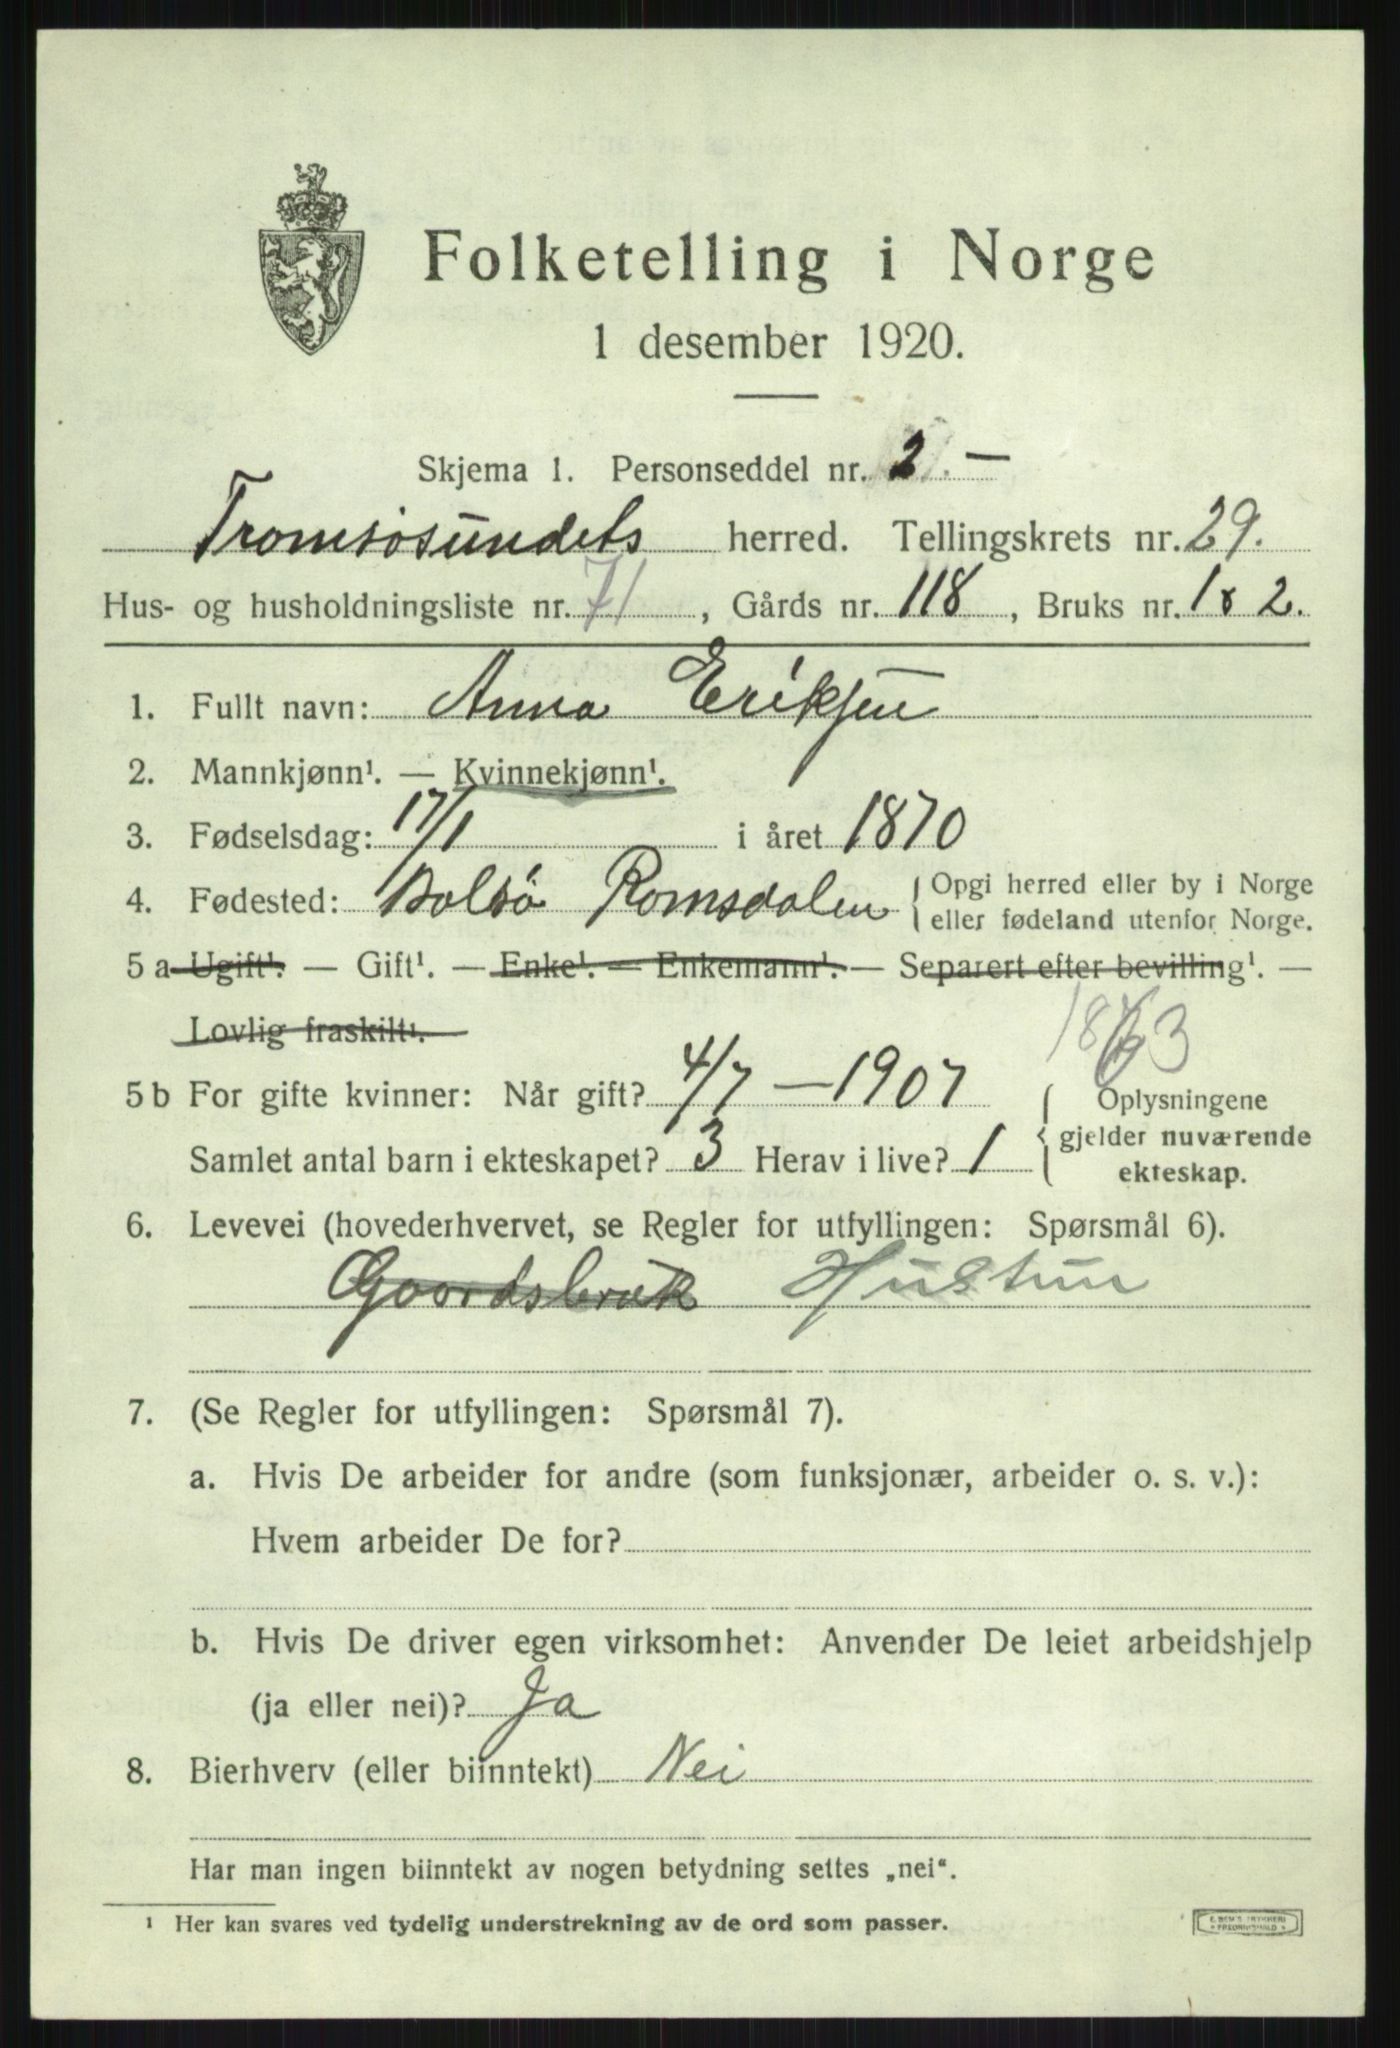 Folketelling i Norge
1 desember 1920.
Skjema 1. Personseddel nr. 2. —
Tromsøsundets herred. Tellingskrets nr. 29.
Hus- og husholdningsliste nr. 71, Gårds nr. 118, Bruks nr. 1 & 2.
1. Fullt navn: Anna Eriksen
2. Mannkjønn¹. — Kvinnekjønn¹.
3. Fødselsdag: 17/1 i året 1870
4. Fødested: Bolsö Romsdalen { Opgi herred eller by i Norge
eller fødeland utenfor Norge.
5 a Ugift¹. — Gift¹. — Enke¹. — Enkemann¹. — Separert efter bevilling¹. —
Lovlig fraskilt¹.
5 b For gifte kvinner: Når gift? 4/7 — 1907
Samlet antal barn i ekteskapet? 3 Herav i live? 1
Oplysningene
gjelder nuværende
ekteskap.
6. Levevei (hovederhvervet, se Regler for utfyllingen: Spørsmål 6).
Goordsbruk Hustru
7. (Se Regler for utfyllingen: Spørsmål 7).
a. Hvis De arbeider for andre (som funksjonær, arbeider o. s. v.):
Hvem arbeider De for?
b. Hvis De driver egen virksomhet: Anvender De leiet arbeidshjelp
(ja eller nei)? Ja
8. Bierhverv (eller biinntekt) Nei
Har man ingen biinntekt av nogen betydning settes „nei“.
¹ Her kan svares ved tydelig understrekning av de ord som passer.